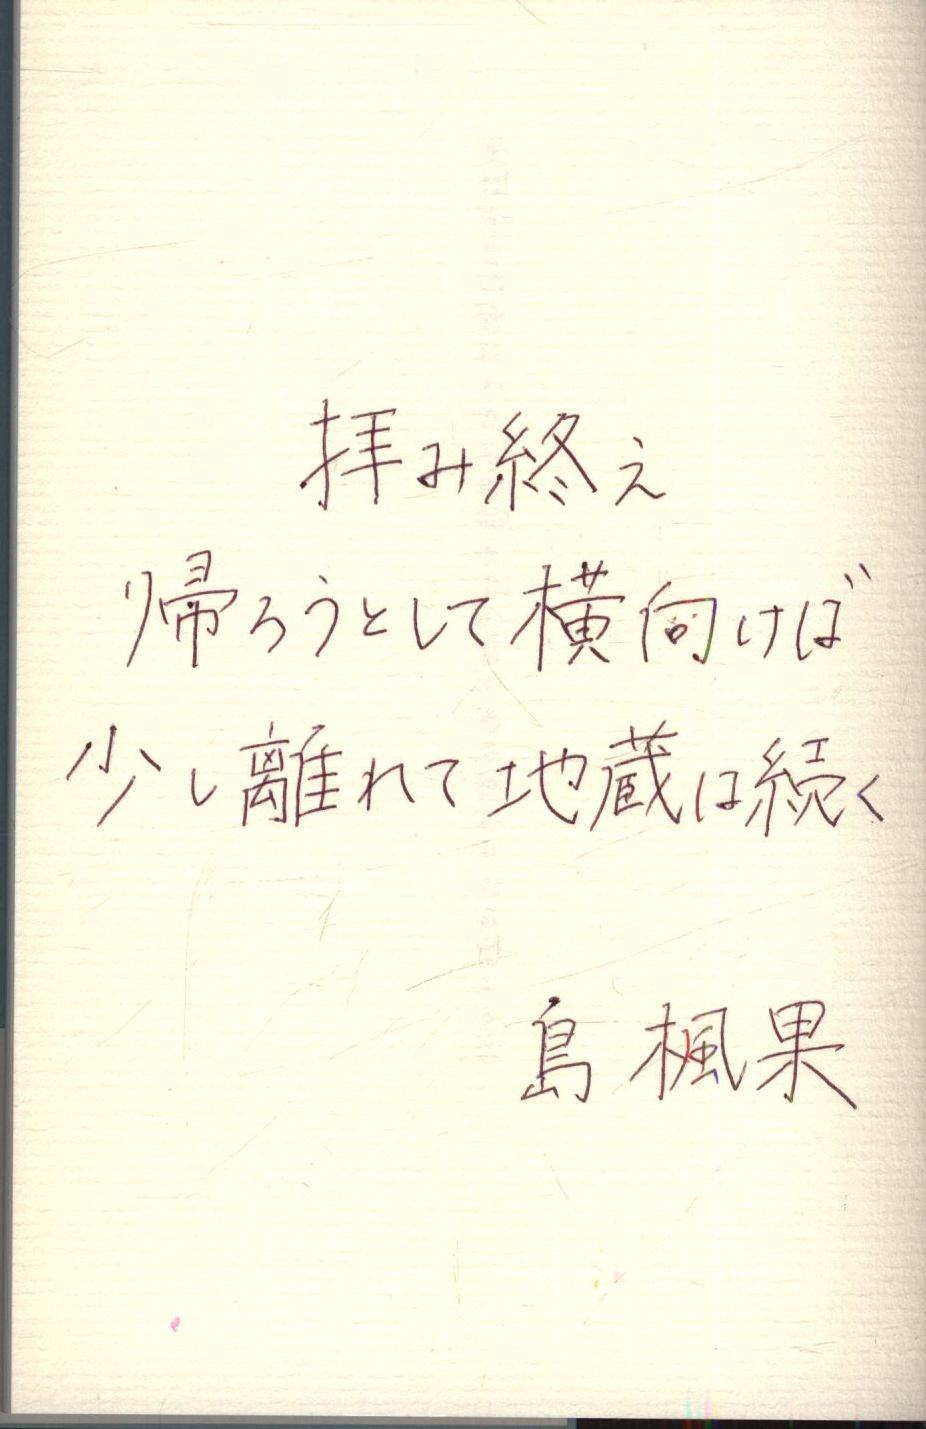 拝み終え
帰ろうとして横向けば
少し離れて地蔵は続く
島楓果